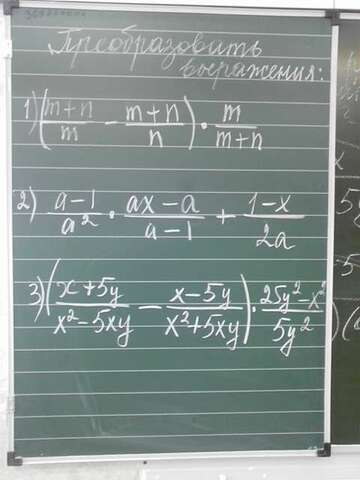 Преобразовать
выражения:
1) ((m+n)/m − (m+n)/n) · m/(m+n)
2) (a−1)/a² · (ax−a)/(a−1) + (1−x)/2a
3) ((x+5y)/(x²−5xy) − (x−5y)/(x²+5xy)) · (25y²−x²)/5y²